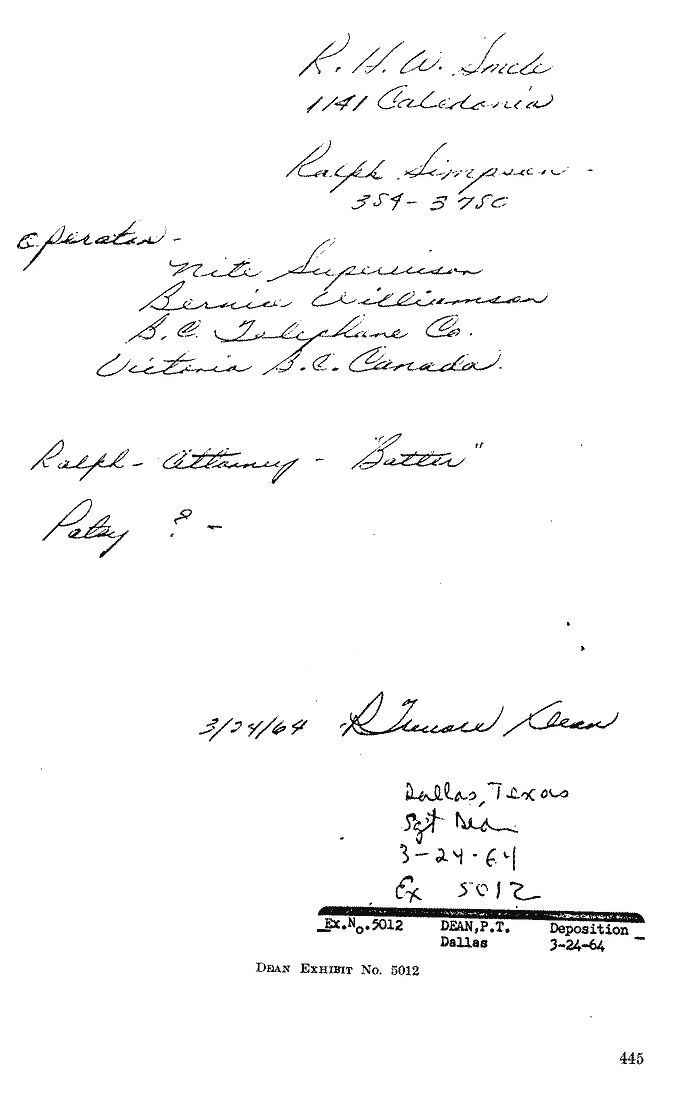 R. H. W.
1141 Caledonia
Ralph Simpson -
384-3780
operator -
Nite Supervisor
Bernice Williamson
B.C. Telephone Co.
Victoria B.C. Canada.
Ralph - Attorney - "Batter"
Patsy ? -
3/24/64 Dean
Dallas, Texas
Sgt Dean
3-24-64
Ex 5012
Ex.No.5012 DEAN,P.T. Deposition
Dallas 3-24-64
DEAN EXHIBIT No. 5012
445